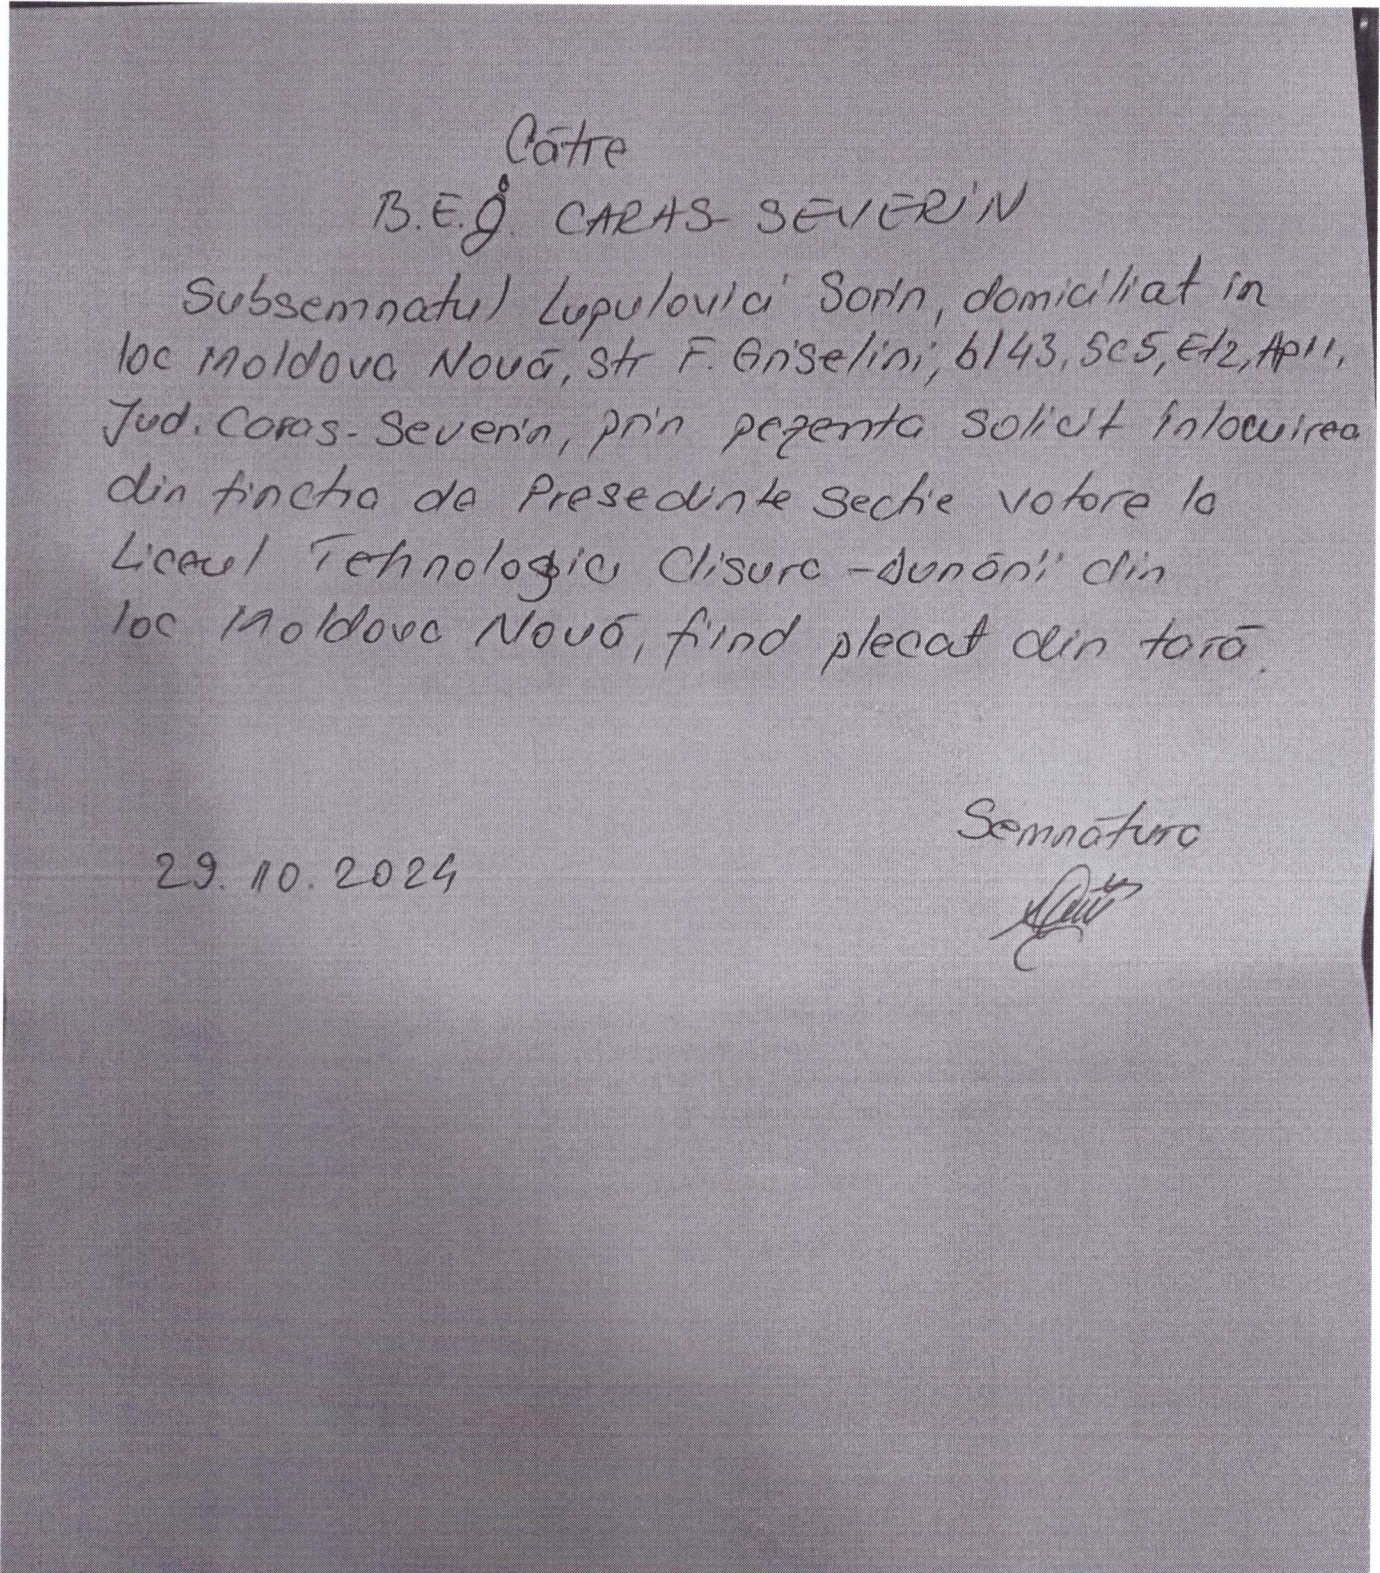 Cātre
B.E.J. CARAS-SEVERIN
Subsemnatul Lupulovici Sorin, domiciliat in
loc Moldova Nouă, str F. Griselini, bl43, Sc5, Et2, Ap11,
Jud. Caras-Severin, prin pezenta solicit înlocuirea
din finctia de Presedinte Sectie votare la
Liceul Tehnologic Clisura-Dunării din
loc Moldova Nouă, fiind plecat din tară.
Semnătura
29.10.2024